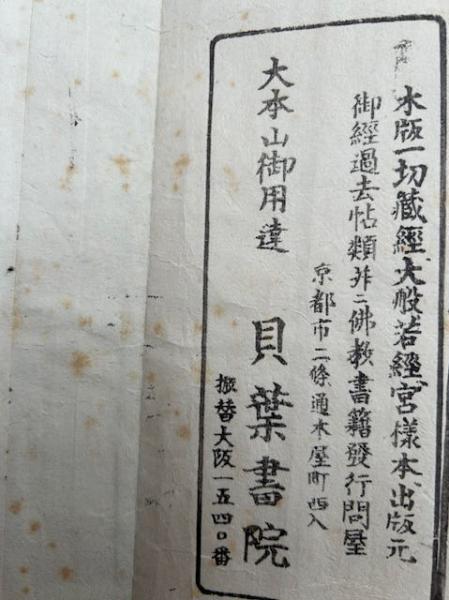 木版一切藏經大般若經宮樣本出版元
御經過去帖類並ニ佛教書籍發行問屋
京都市二條通木屋町西入
大本山御用達
貝葉書院
振替大阪一五四〇番